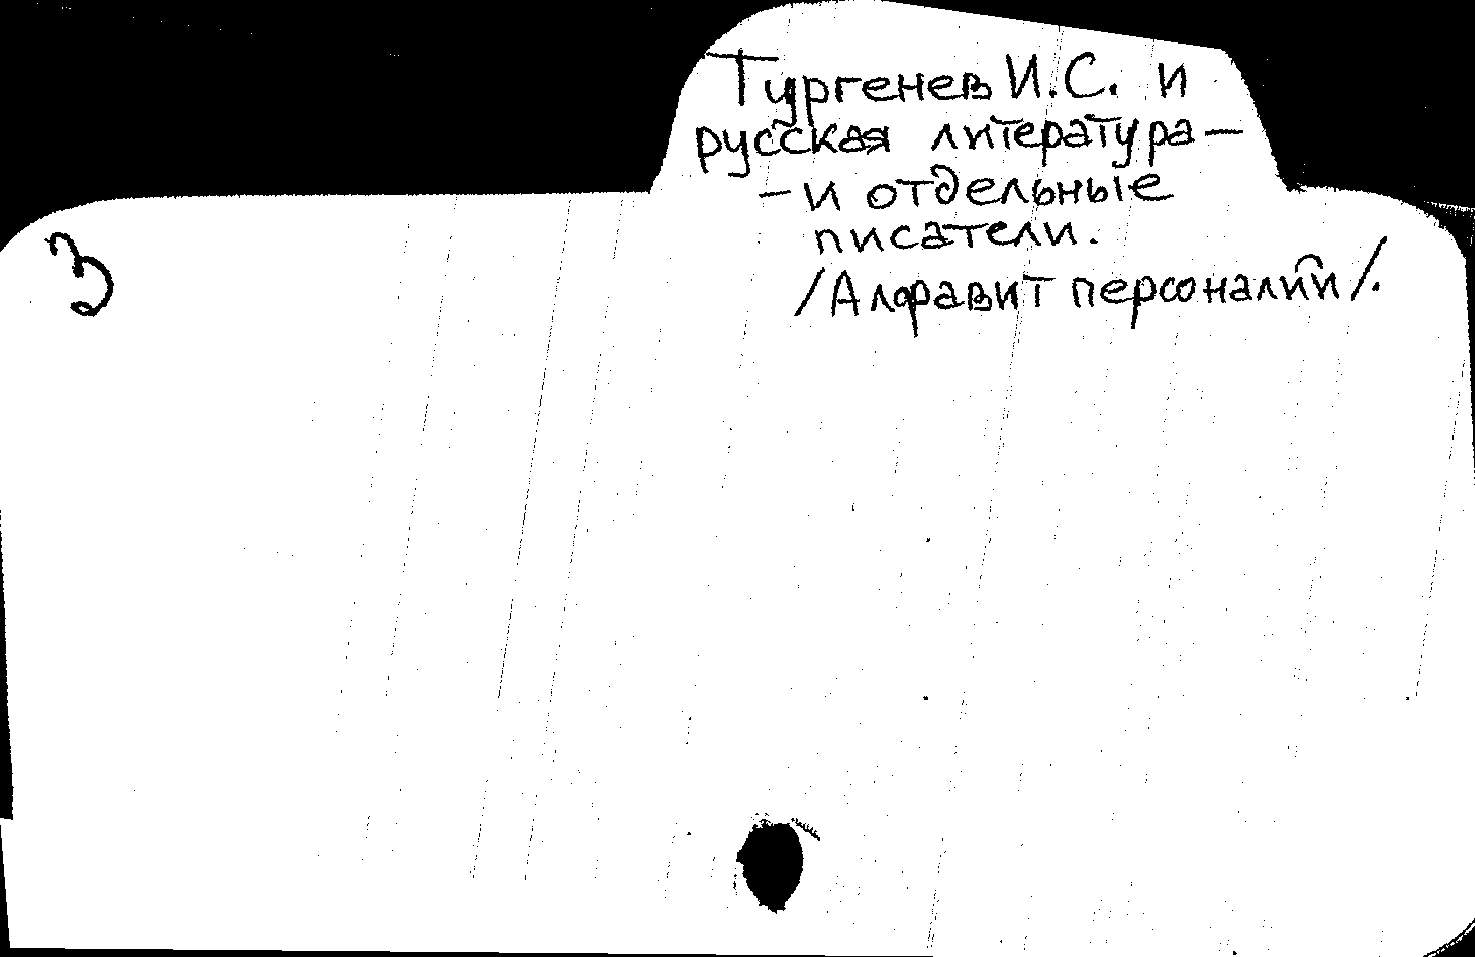 Тургенев И.С. и
русская литература —
— и отдельные
писатели.
/Алфавит персоналий/.
3